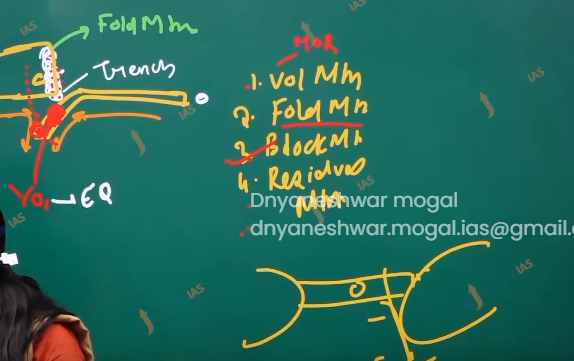 Fold Mtn
Trench
Vol → EQ
MOR
1. Vol Mtn
2. Fold Mtn
3. Block Mt
4. Residual
Mtn
Dnyaneshwar mogal
dnyaneshwar.mogal.ias@gmail.c
IAS
IAS
IAS
IAS
IAS
IAS
IAS
IAS